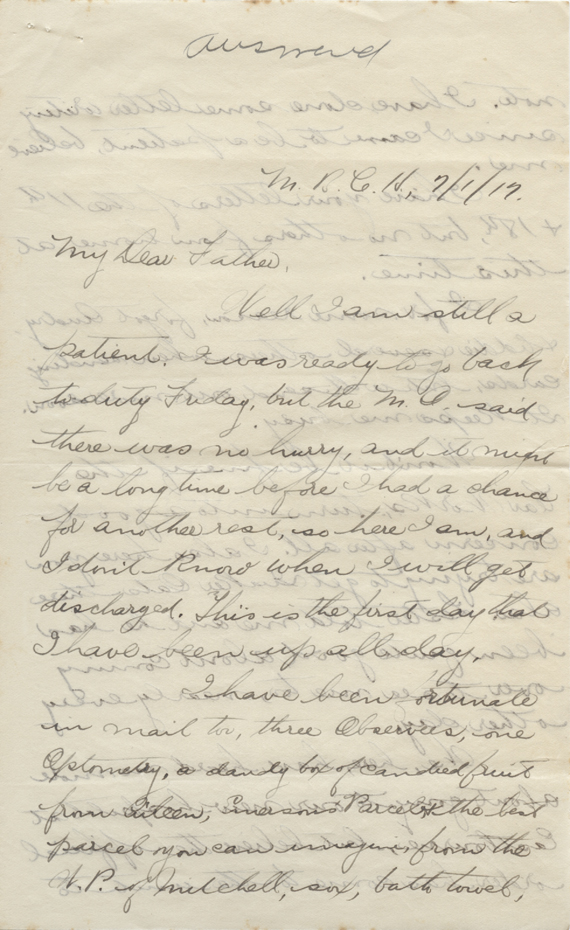 answered
7/1/17.
My Dear Father,
Well I am still a
patient. I was ready to go back
to duty Friday, but the M.O. said
there was no hurry, and it might
be a long time before I had a chance
for another rest, so here I am, and
I don't know when I will get
discharged. This is the first day that
I have been up all day.
I have been fortunate
in mail too, three Observers, one
Optometry, a dandy box of candied fruit
from Eileen, Emersons Parcel & the best
parcel you can imagine from the
W.P. of Mitchell, sox, bath towel,